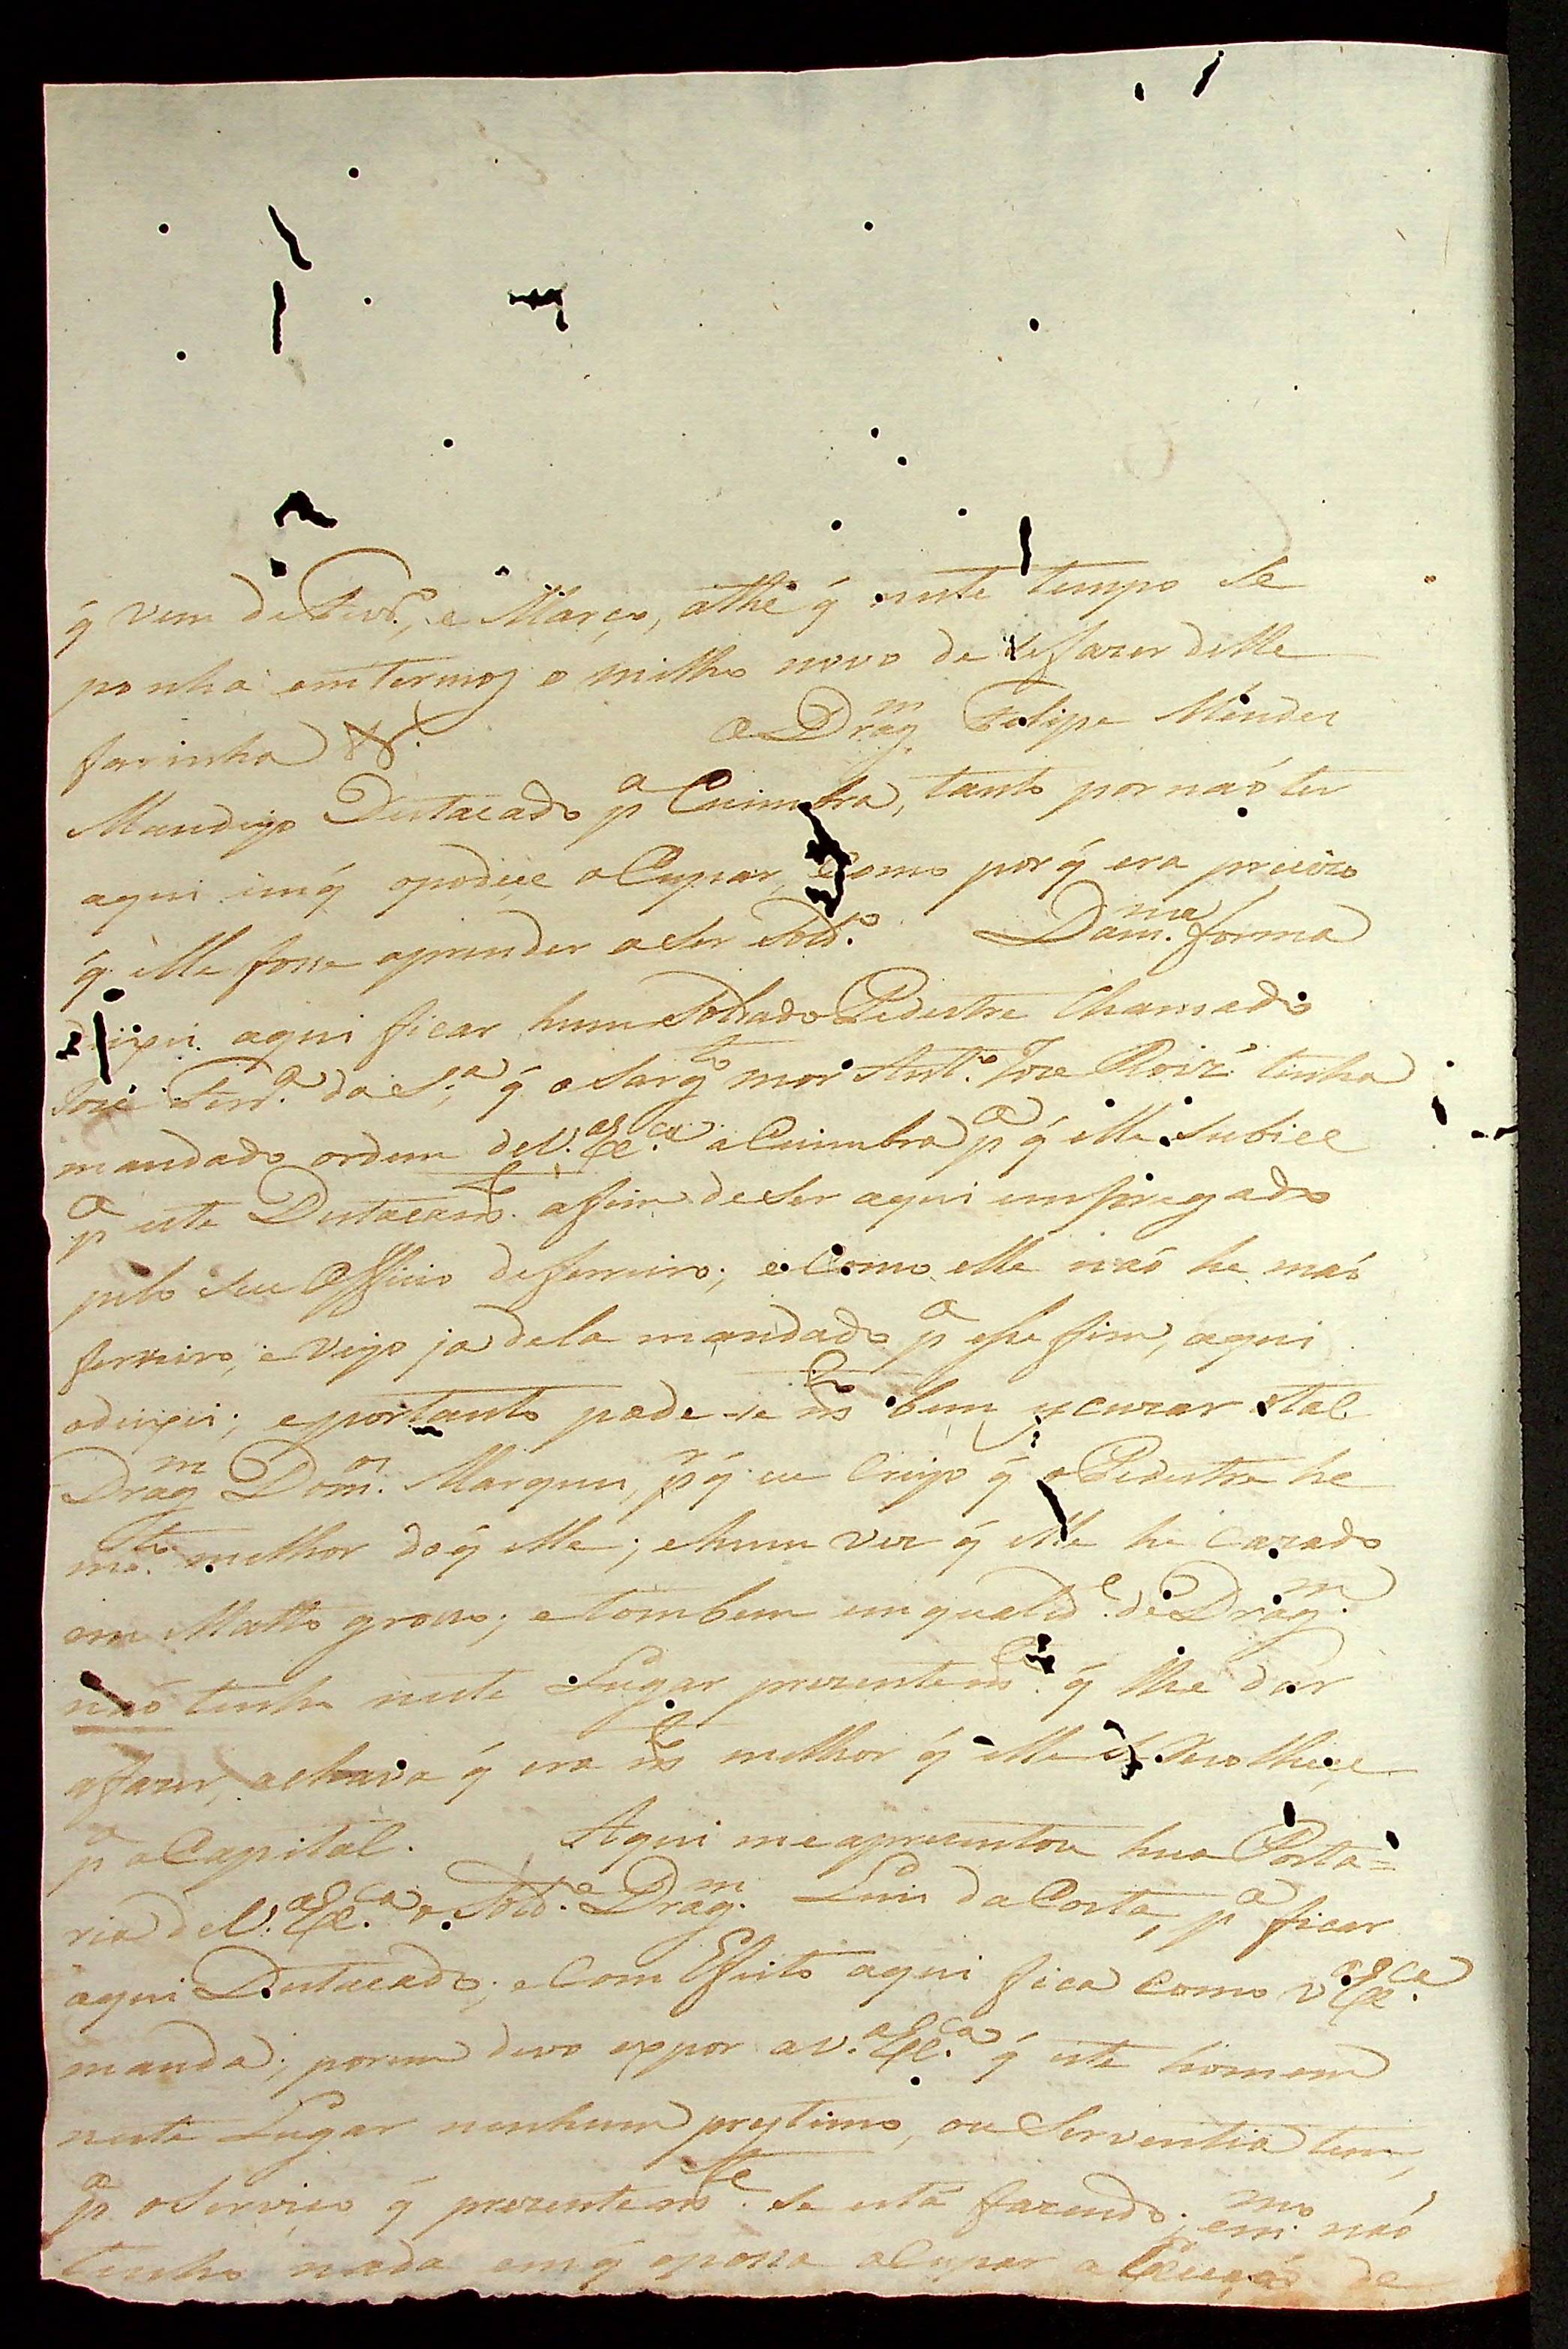 q̃ vem de Fevr.º, e Março, athé q̃ neste tempo se
ponha em termos o milho novo de se fazer delle
farinha &. O Drag.m Felipe Mendes
Mandeyo Destacado p.a Cuimbra, tanto por naó ter
aqui em q̃ o podeçe oCupar, Como por q̃ era precizo
q̃ elle fosse aprender a ser Sold.º Dam.ma forma
deixei aqui ficar hum Soldado Pedestre Chamado
José Ferr.ª da S.ª q̃ o Sarg.to mor Ant.º Joze Roiz' tinha
mandado ordem de V. Ex.ca a Cuimbra p.a q̃ elle Subice
p.a este Destacam.to afim de Ser aqui empregado
pelo seu Officio de ferreiro; e Como elle naó he máo
ferreiro, e veyo ja de la mandado p.a esse fim, aqui
o deixei; e portanto pode-se m.to bem escuzar o tal
Drag.m Dom.os Marques, p.r q̃ eu Creyo q̃ o Pedestre he
m.to melhor do q̃ elle; e huma vez q̃ elle he cazado
em Matto groso; e tombem em qualid.e de Drag.m
naó tenho neste Lugar prezentem.te q̃ lhe dar
afazer, achava q̃ era m.to melhor q̃ elle se Recolheçe
p.a a Capital. Aqui me aprezentou hua Porta=
ria de V. Ex.ca o Sold.º Drag.m Luis da Costa, p.a ficar
aqui Destacado; e Com Efeito aqui fica como V. Ex.ca
manda; porem devo expor a V. Ex.ca q̃ este homem
neste Lugar nenhum prestimo, ou Serventia tem,
p.a o Serviço q̃ prezentem.te se está fazendo; em.mo naó
tenho nada em q̃ o possa oCupar a de